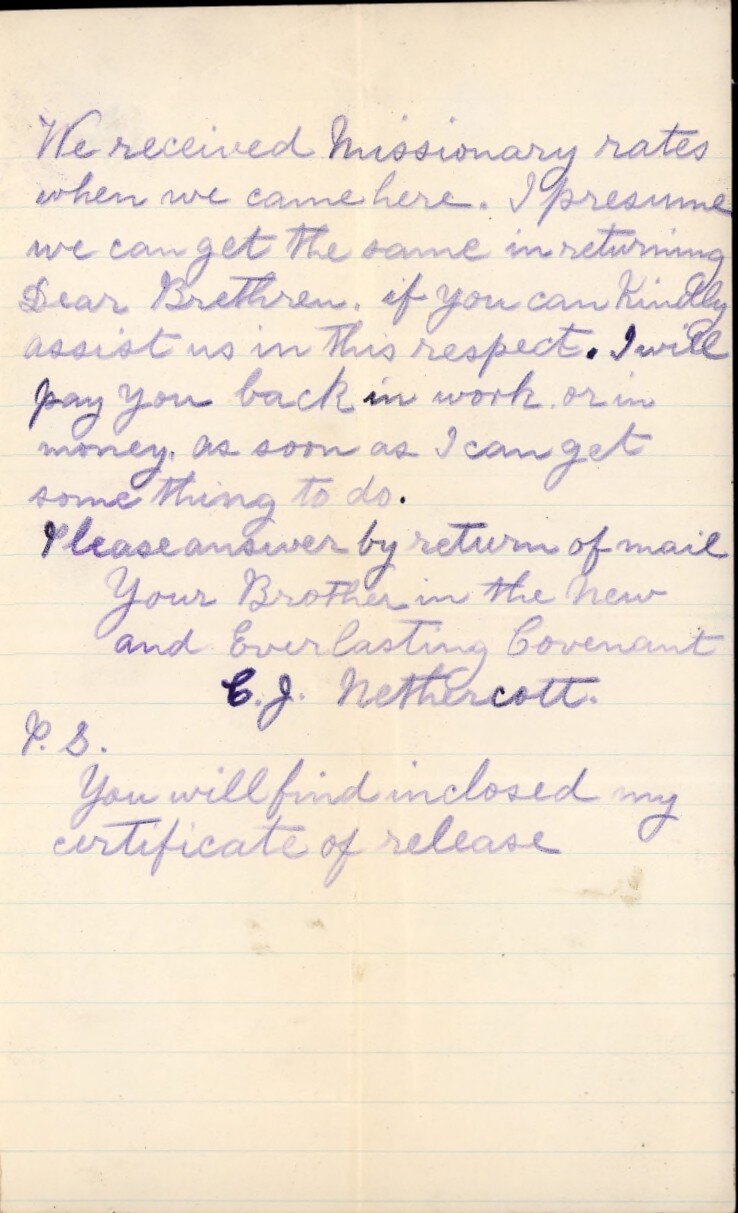 We received Missionary rates
when we came here. I presume
we can get the same in returning
Dear Brethren. if you can Kindly
assist us in this respect. I will
pay you back in work. or in
money. as soon as I can get
some thing to do.
Please answer by return of mail
Your Brother in the New
and Everlasting Covenant
C. J. Nethercott.
P. S.
You will find inclosed my
certificate of release